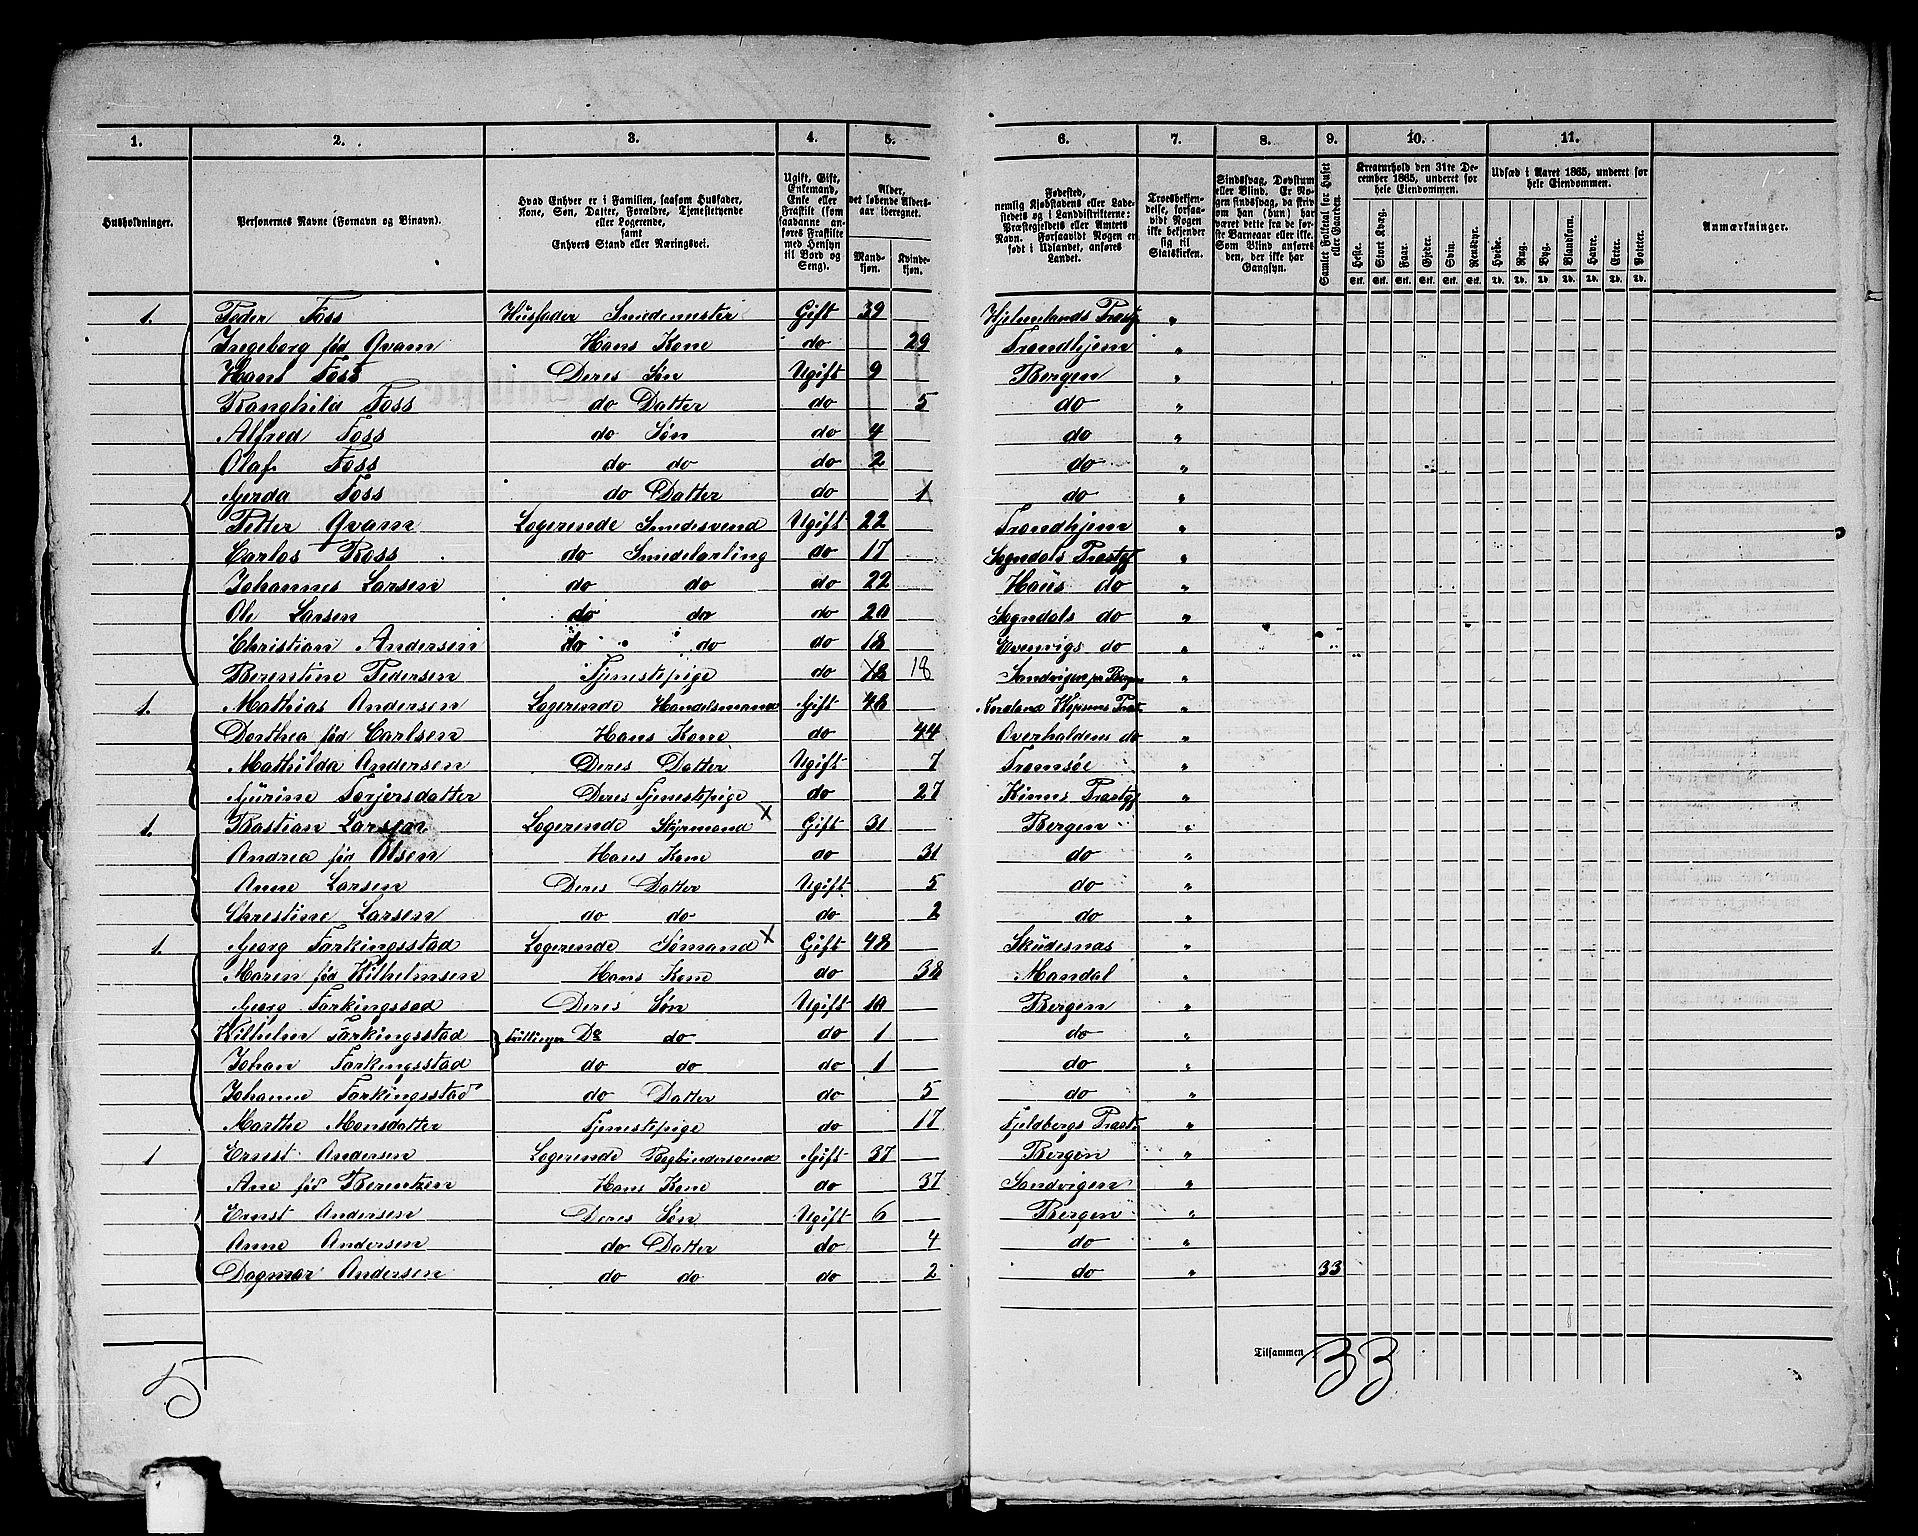 1. 2. 3. 4. 5. 6. 7. 8. 9. 10. 11.
Husholdninger.
Personernes Navne (Fornavn og Binavn).
Hvad Enhver er i Familien, saasom Husfader, Kone, Søn, Datter, Forældre, Tjenestetyende eller Logerende, samt Enhvers Stand eller Næringsvei.
Ugift, Gift, Enkemand, Enke eller Fraskilt (som saadanne anføres Fraskilte med Hensyn til Bord og Seng).
Alder, det løbende Alders-aar iberegnet.
Mandkjøn. Kvindekjøn.
Fødested, nemlig Kjøbstadens eller Ladestedets og i Landdistrikterne: Præstegjeldets eller Amtets Navn. Forsaavidt Nogen er født i Udlandet, anføres Landet.
Troesbekjendelse, forsaavidt Nogen ikke bekjender sig til Statskirken.
Sindssvag, Døvstum eller Blind. Er Nogen sindssvag, da skriv om han (hun) har været dette fra de første Barneaar eller ikke. Som Blind anføres den, der ikke har Gangsyn.
Samlet Folketal for Huset eller Gaarden.
Kreaturhold den 31te December 1865, underet for hele Eiendommen.
Heste. Stort Kvæg. Faar. Gjeder. Svin. Rensdyr.
Udsæd i Aaret 1865, underet for hele Eiendommen.
Hvede. Rug. Byg. Blandkorn. Havre. Erter. Poteter.
Anmærkninger.
1. Peder Foss Husfader Smedemester Gift 39 Hjelmelands Præstg "
Ingeborg fød Qvam Hans Kone do 29 Trondhjem "
Hans Foss Deres Søn Ugift 9 Bergen "
Ranghild Foss do Datter do 5 do "
Alfred Foss do Søn do 4 do "
Olaf Foss do do do 2 do "
Gerda Foss do Datter do 1 do "
Petter Qvam Logerende Smedesvend Ugift 22 Trondhjem "
Carlos Ross do Smedelærling do 17 Sogndals Præstgj "
Johannes Larsen do do do 22 Haus do "
Ole Larsen do do do 20 Sogndals do "
Christian Andersen do do do 18 Evenvigs do "
Berentine Pedersen Tjenestepige do 18 18 Sandvigen pr Bergen "
1. Mathias Andersen Logerende Handelsmand Gift 48 "
Dorthea fød Carlsen Hans Kone do 44 Overhaldens do "
Mathilda Andersen Deres Datter Ugift 7 Tromsøe "
Gurine Torjersdatter Deres Tjenestepige do 27 Kinns Præstgj "
1. Bastian Larsen Logerende Styrmand X Gift 31 Bergen "
Andrea fød Olsen Hans Kone do 31 do "
Anne Larsen Deres Datter Ugift 5 do "
Christine Larsen do do do 2 do "
1. Georg Tarkingsstad Logerende Sømand X Gift 48 Skudesnæs "
Maren fød Vilhelmsen Hans Kone do 38 Mandal "
Georg Tarkingssad Deres Søn Ugift 10 Bergen "
Vilhelm Tarkingsstad Tvillinger Do do do 1 do "
Johan Tarkingsstad do do do 1 do "
Johanne Tarkingsstad do Datter do 5 do "
Marthe Monsdatter Tjenestepige do 17 Fjeldbergs Præst "
1 Ernst Andersen Logerende Bogbindersvend Gift 37 Bergen "
Ane fød Berentzen Hans Kone do 37 Sandvigen "
Ernst Andersen Deres Søn Ugift 6 Bergen "
Anne Andersen do Datter do 4 do "
Dagmar Andersen do do do 2 do " 33
Tilsammen 33
5